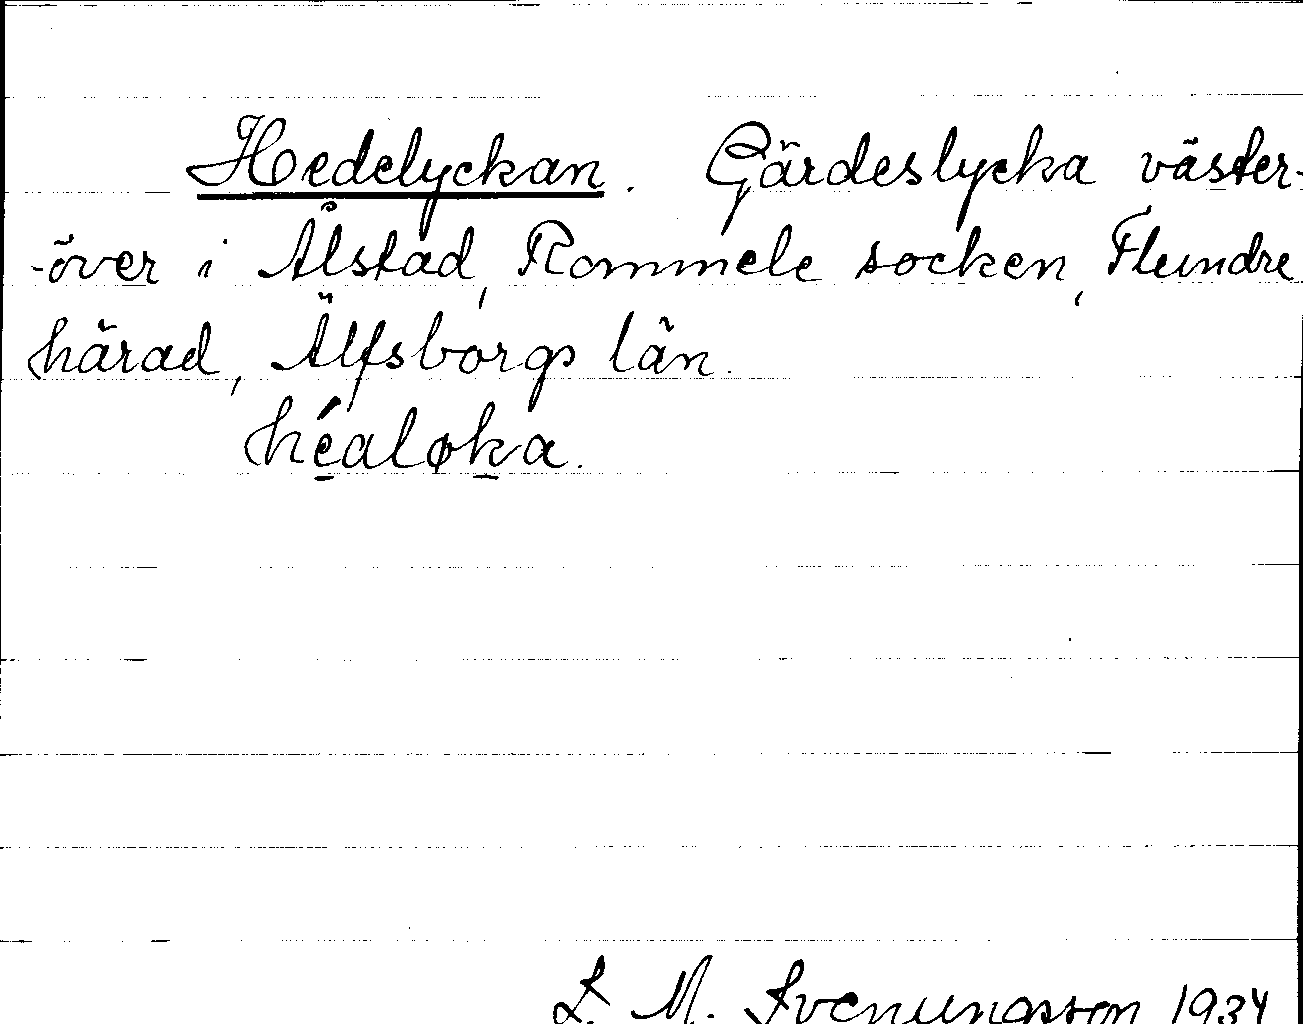 Hedelyckan. Gärdeslycka väster-
-över i Ålstad, Rommele socken, Flundre
härad, Älfsborgs län.
héaløka.
L. M. Svenungsson 1934